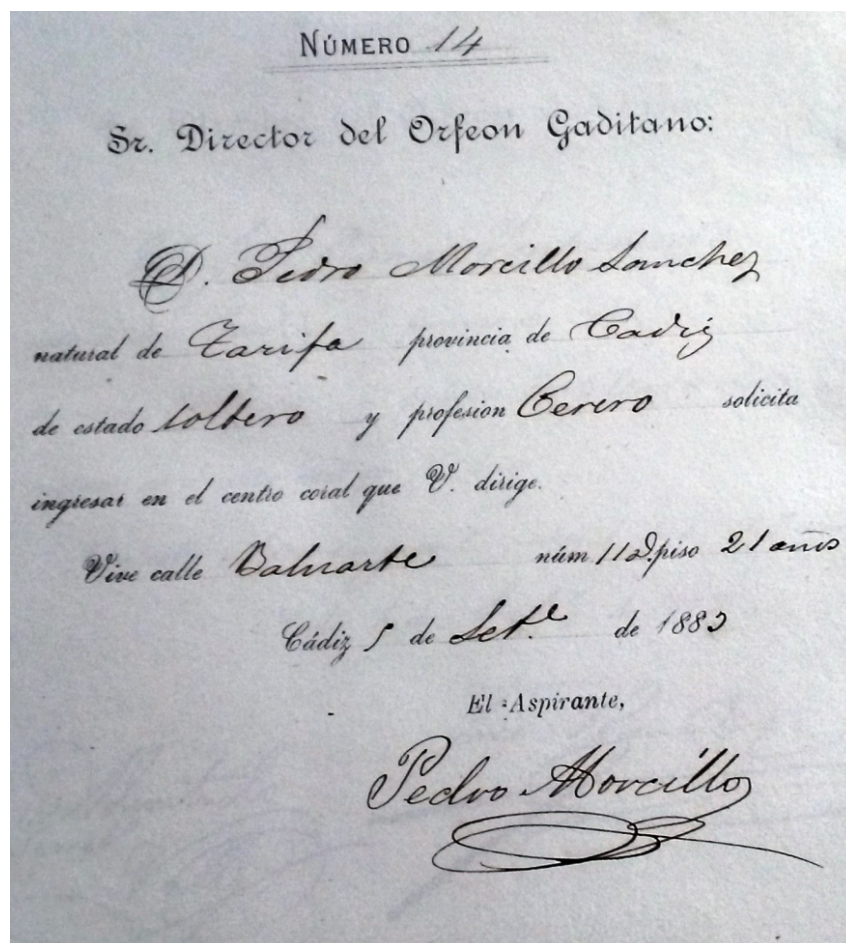 NÚMERO 14
Sr. Director del Orfeon Gaditano:
D. Pedro Morcillo Sanchez
natural de Tarifa provincia de Cadiz
de estado soltero y profesion Cerero solicita
ingresar en el centro coral que V. dirige.
Vive calle Baluarte núm 11 piso 21 años
Cádiz 5 de Set.e de 1883
El Aspirante,
Pedro Morcillo